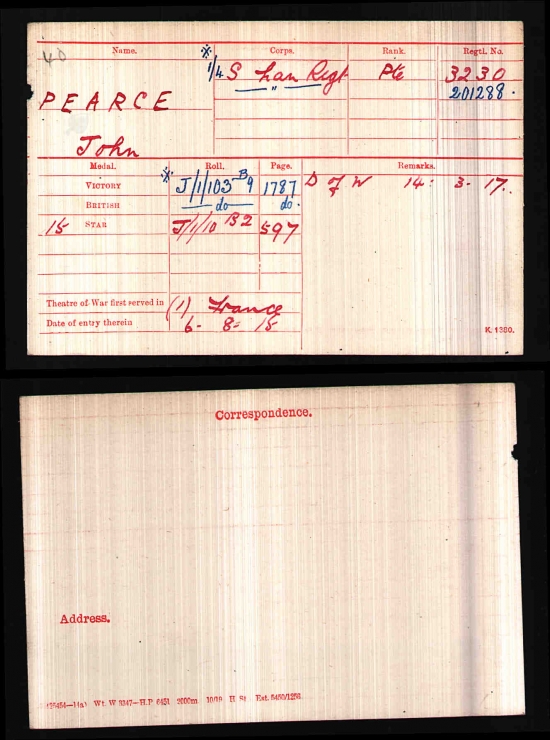 40
Name. Corps. Rank. Regtl. No.
※ 1/4 S Lan Regt Pte 3230
" 201288.
PEARCE
John
Medal. Roll. Page. Remarks.
※ VICTORY J/1/103 B9 1787 D of W 14. 3. 17.
BRITISH do do.
15 STAR J/1/10 B2 597
Theatre of War first served in (1) France
Date of entry therein 6- 8- 15
K. 1380.
Correspondence.
Address.
Wt. W 3347—H.P 6451 2000m. 10/19 H St. Est. 5450/1256